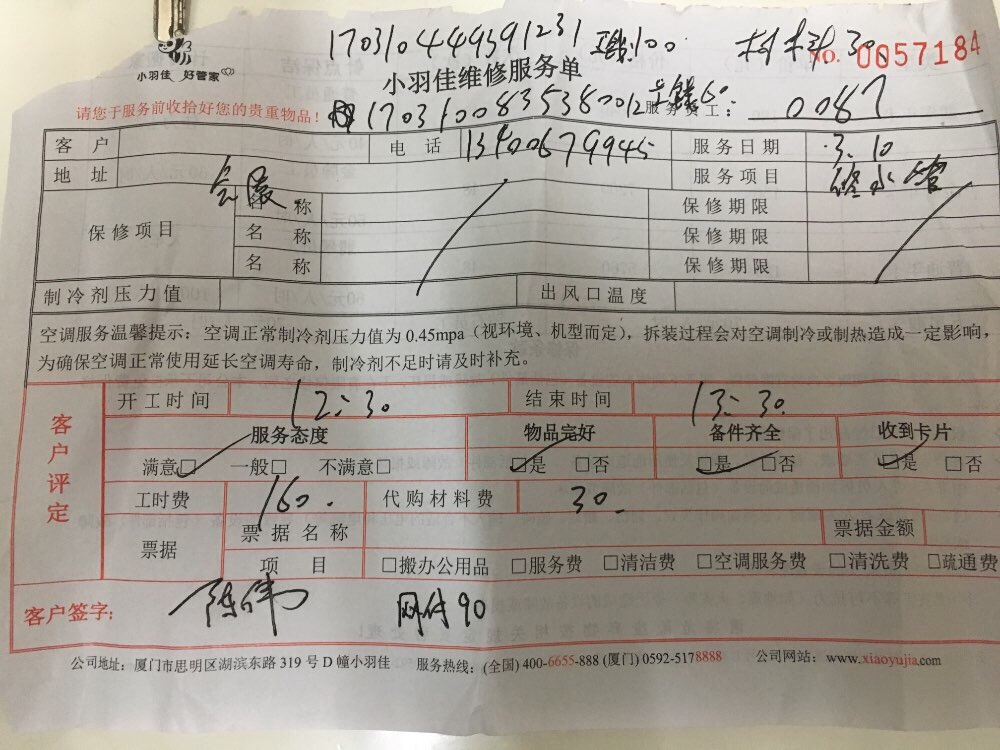 170310449591231 100 材料30
No. 0057184
小羽佳 好管家
小羽佳维修服务单
请您于服务前收拾好您的贵重物品！ 服务员工： 0087
客户 电话 13400679945 服务日期 3.10
地址 服务项目 修水管
保修项目 名称 保修期限
名称 保修期限
名称 保修期限
制冷剂压力值 出风口温度
空调服务温馨提示：空调正常制冷剂压力值为0.45mpa（视环境、机型而定），拆装过程会对空调制冷或制热造成一定影响，
为确保空调正常使用延长空调寿命，制冷剂不足时请及时补充。
客户评定
开工时间 12:30 结束时间 13:30.
服务态度 物品完好 备件齐全 收到卡片
满意□ 一般□ 不满意□ □是 □否 □是 □否 □是 □否
工时费 160. 代购材料费 30.
票据 票据名称 票据金额
项目 □搬办公用品 □服务费 □清洁费 □空调服务费 □清洗费 □疏通费
客户签字： 陈伟 网付90
公司地址：厦门市思明区湖滨东路319号D幢小羽佳 服务热线：(全国) 400-6655-888 (厦门) 0592-5178888 公司网站：www.xiaoyujia.com